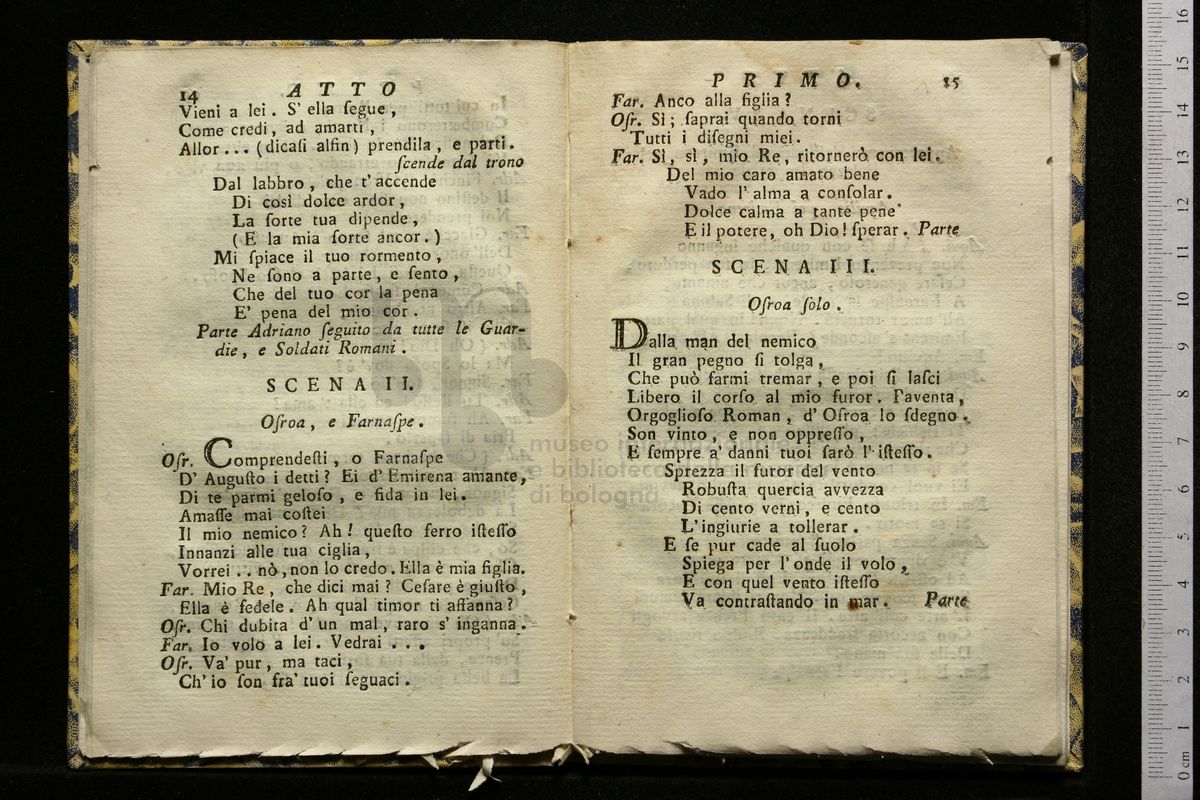 14 ATTO
Vieni a lei. S' ella ſegue,
Come credi, ad amarti,
Allor... (dicaſi alfin) prendila, e parti.
ſcende dal trono
Dal labbro, che t' accende
Di così dolce ardor,
La ſorte tua dipende,
(E la mia ſorte ancor.)
Mi ſpiace il tuo rormento,
Ne ſono a parte, e ſento,
Che del tuo cor la pena
E' pena del mio cor.
Parte Adriano ſeguito da tutte le Guar-
die, e Soldati Romani.
SCENA II.
Oſroa, e Farnaſpe.
Oſr. Comprendeſti, o Farnaſpe
D' Auguſto i detti? Ei d' Emirena amante,
Di te parmi geloſo, e fida in lei.
Amaſſe mai coſtei
Il mio nemico? Ah! queſto ferro iſteſſo
Innanzi alle tua ciglia,
Vorrei.. nò, non lo credo. Ella è mia figlia.
Far. Mio Re, che dici mai? Ceſare è giuſto,
Ella è fedele. Ah qual timor ti affanna?
Oſr. Chi dubita d' un mal, raro s' inganna.
Far. Io volo a lei. Vedrai...
Oſr. Va' pur, ma taci,
Ch' io ſon fra' tuoi ſeguaci.
PRIMO. 15
Far. Anco alla figlia?
Oſr. Sì; ſaprai quando torni
Tutti i diſegni miei.
Far. Sì, sì, mio Re, ritornerò con lei.
Del mio caro amato bene
Vado l' alma a conſolar.
Dolce calma a tante pene
E il potere, oh Dio! ſperar. Parte
SCENA III.
Oſroa ſolo.
Dalla man del nemico
Il gran pegno ſi tolga,
Che può farmi tremar, e poi ſi laſci
Libero il corſo al mio furor. Paventa,
Orgoglioſo Roman, d' Oſroa lo ſdegno.
Son vinto, e non oppreſſo,
E ſempre a' danni tuoi ſarò l' iſteſſo.
Sprezza il furor del vento
Robuſta quercia avvezza
Di cento verni, e cento
L' ingiurie a tollerar.
E ſe pur cade al ſuolo
Spiega per l' onde il volo,
E con quel vento iſteſſo
Va contraſtando in mar. Parte
museo internazionale
e biblioteca
di bologna
0 cm 1 2 3 4 5 6 7 8 9 10 11 12 13 14 15 16